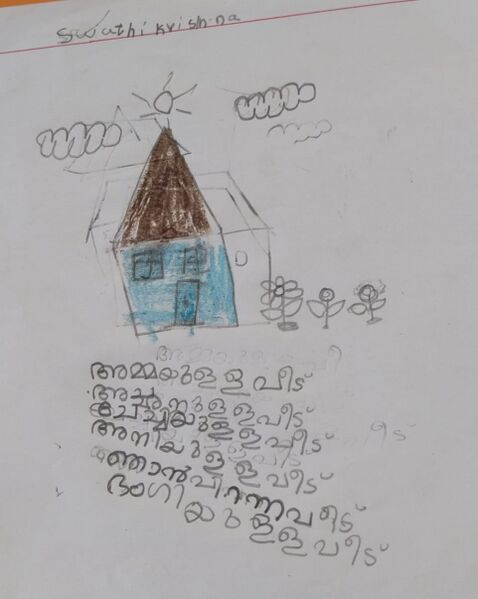 Swathi krishna
അമ്മയുള്ള വീട്
അച്ഛനുള്ളവീട്
ചേച്ചിയുള്ളവീട്
അനിയുള്ളവീട്
ഞാൻപിറന്നവീട്
ഭംഗി
യുള്ളവീട്